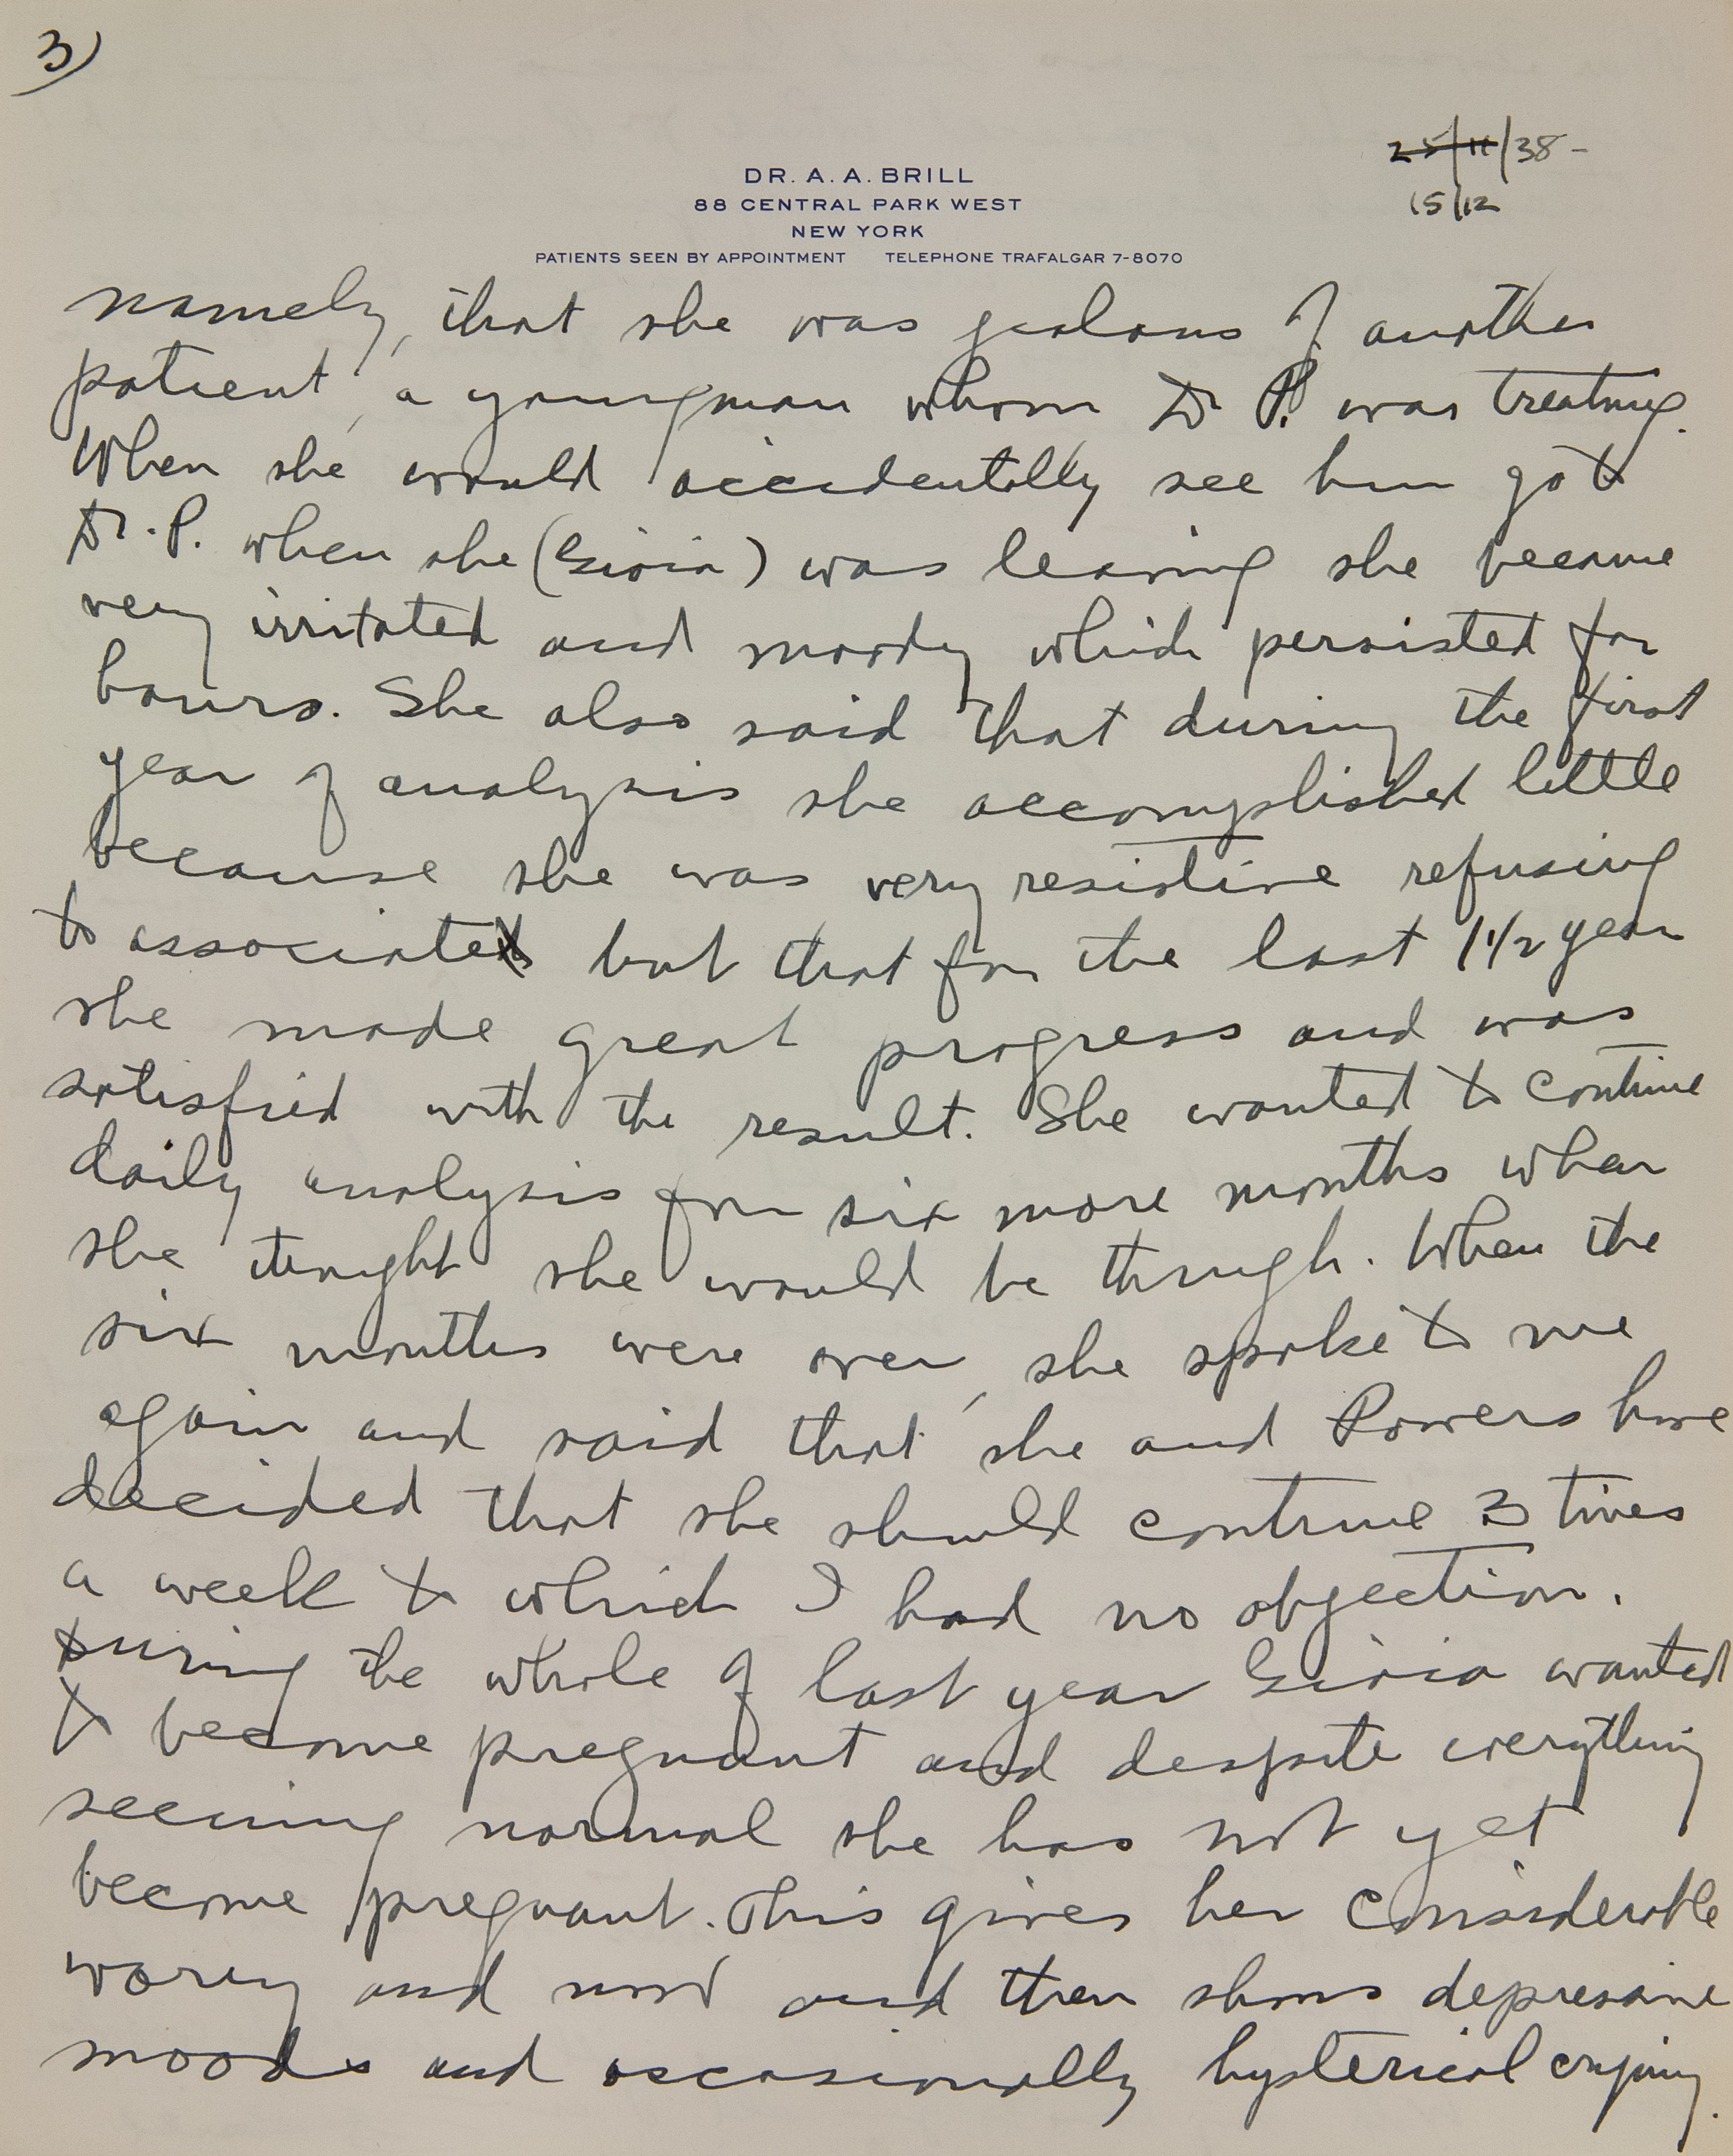 3)
25/11/38-
15/12
DR. A. A. BRILL
88 CENTRAL PARK WEST
NEW YORK
PATIENTS SEEN BY APPOINTMENT TELEPHONE TRAFALGAR 7-8070
namely, that she was jealous of another
patient, a youngman whom Dr P. was treating.
When she would accidentally see him go to
Dr. P. when she (Gioia) was leaving she became
very irritated and moody which persisted for
hours. She also said that during the first
year of analysis she accomplished little
because she was very resistive refusing
to associate but that for the last 1 1/2 year
she made great progress and was
satisfied with the result. She wanted to continue
daily analysis for six more months when
she thought she would be through. When the
six months were over, she spoke to me
again and said that she and Powers have
decided that she should continue 3 times
a week to which I had no objection.
During the whole of last year Gioia wanted
to become pregnant and despite everything
seeming normal she has not yet
become pregnant. This gives her considerable
worry and now and then shows depressive
moods and occasionally hysterical crying.